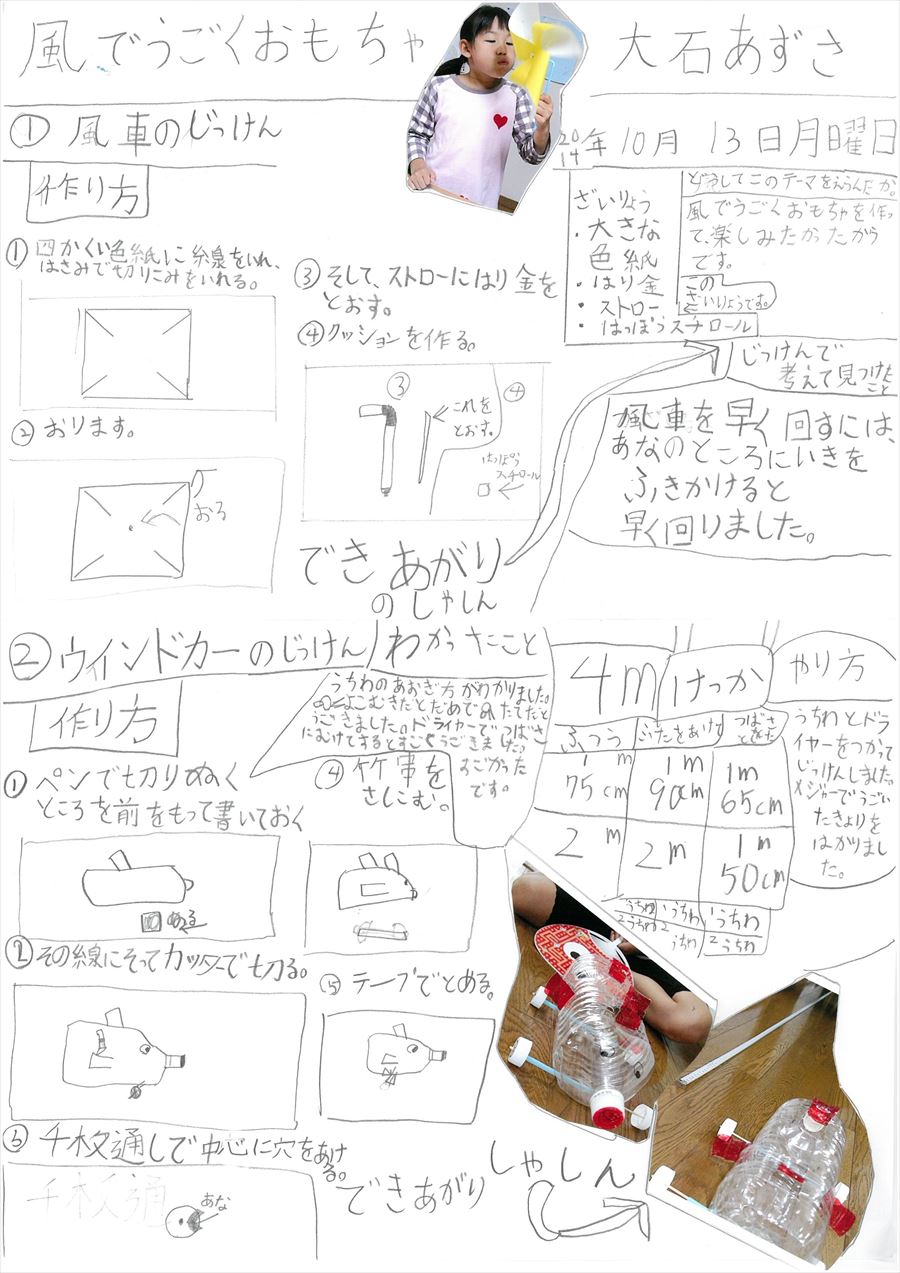 風でうごくおもちゃ
大石あずさ
① 風車のじっけん
2014年10月13日月曜日
作り方
ざいりょう
・大きな
色紙
・はり金
・ストロー
・はっぽうスチロール
どうしてこのテーマをえらんだか。
風でうごくおもちゃを作っ
て、楽しみたかったから
です。
この
ざいりょうです。
① 四かくい色紙に糸泉をいれ、
はさみで切りこみをいれる。
② おります。
おる
③ そして、ストローにはり金を
とおす。
④ クッションを作る。
③
これを
とおす。
④
はっぽう
スチロール
できあがり
のしゃしん
じっけんで
考えて見つけた
こと
風車を早く回すには、
あなのところにいきを
ふきかけると
早く回りました。
② ウインドカーのじっけん
わかったこと
うちわのあおぎ方がわかりました。
よこむきだとだめで
たてだと
うごきました。ドライヤーでつばさ
にむけてするとすごくうごきました。
すごかった
です。
作り方
① ペンで切りぬく
ところを前をもって書いておく
ぬる
② その線にそってカッターで切る。
③ 千枚通しで中心に穴をあけ
る。
千枚通
あな
④ 竹串を
さしこむ。
⑤ テープでとめる。
できあがり
しゃしん
4m
けっか
ふつう
つばさ
1m
75cm
1m
90cm
1m
65cm
2m
2m
1m
50cm
1うちわ
2うちわ
1うちわ
2うちわ
1うちわ
2うちわ
やり方
うちわとドラ
イヤーをつかって
じっけんしました。
メジャーでうごい
たきょりを
はかりまし
た。